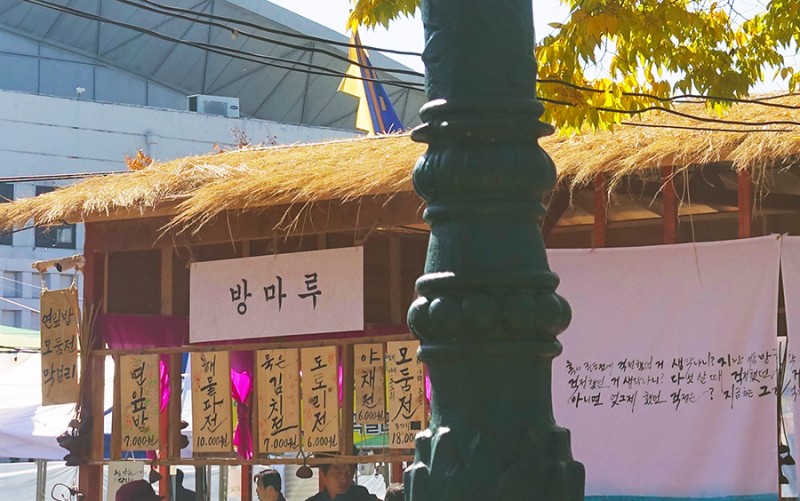 방마루
연잎밥
모둠전
막걸리
연잎밥
7.000원
해물파전
10.000원
묵은김치전
7.000원
도토리전
6.000원
야채전
6.000원
모둠전
18.000
걱정했던 거 생각나니? 지난
걱정했던 거 생각나니? 다섯 살 때 걱정했던
아니면 엊그제 했던 걱정은~? 지금하는 그